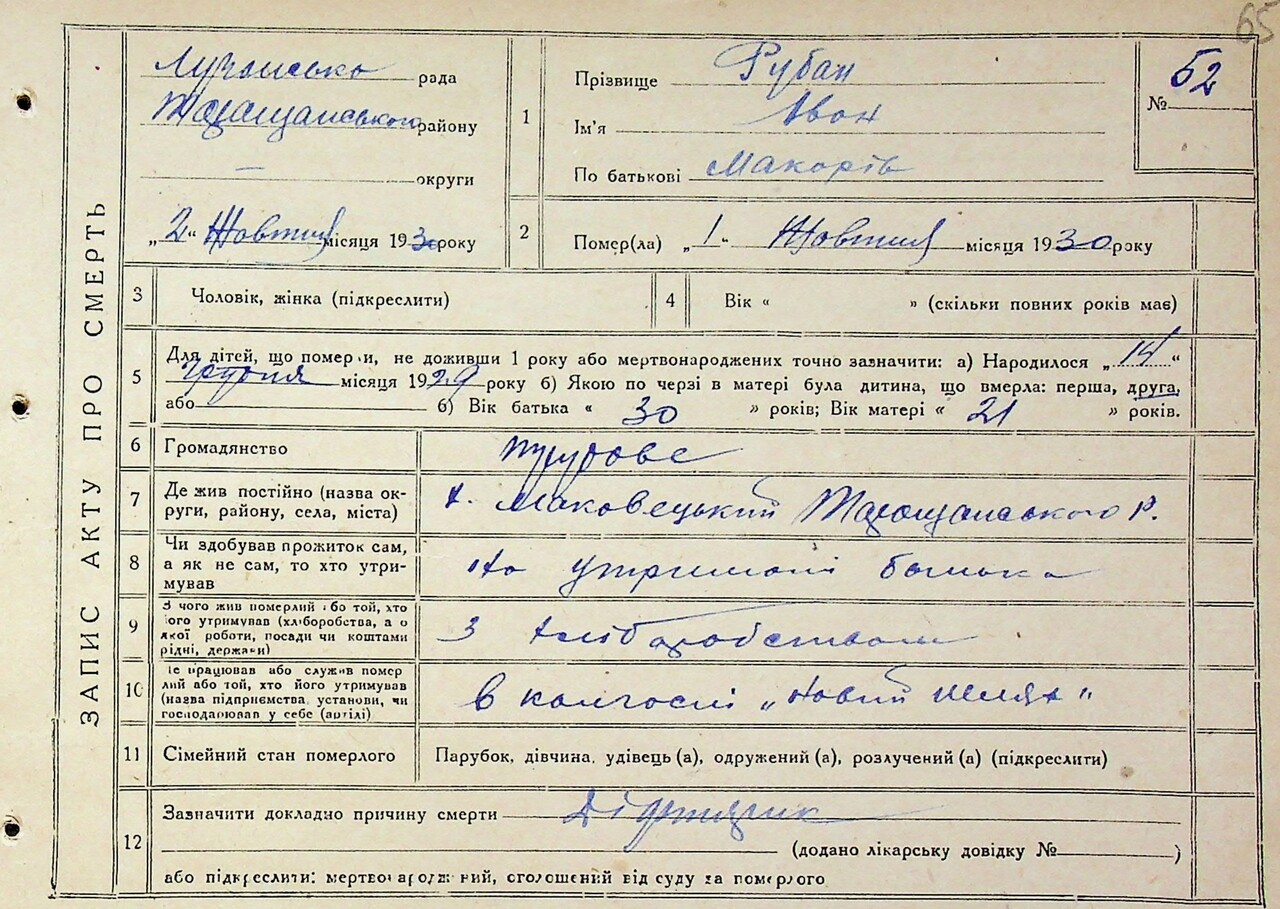 65
ЗАПИС АКТУ ПРО СМЕРТЬ
Лучанська рада
Таращанського району
— округи
„2“ Жовтня місяця 1930 року
1
Прізвище Рубан
Ім'я Івон
По батькові Макорів
№ 52
2
Помер(ла) „1“ Жовтня місяця 1930 року
3 Чоловік, жінка (підкреслити)
4 Вік « » (скільки повних років має)
5 Для дітей, що померли, не доживши 1 року або мертвонароджених точно зазначити: а) Народилося „14“
Грудня місяця 1929 року б) Якою по черзі в матері була дитина, що вмерла: перша, друга,
або б) Вік батька « 30 » років; Вік матері « 21 » років.
6 Громадянство трудове
7 Де жив постійно (назва ок-
руги, району, села, міста)
х. Маковецький Таращанського р.
8 Чи здобував прожиток сам,
а як не сам, то хто утри-
мував
На утримані батька
9 З чого жив померлий або той, хто
його утримував (хліборобства, а о
якої роботи, посади чи коштами
рідні, держави)
З хліборобством
10 Де працював або служив помер
лий або той, хто його утримував
(назва підприємства, установи, чи
господарював у себе (артілі)
в колгоспі „Новий шлях“
11 Сімейний стан померлого Парубок, дівчина, удівець (а), одружений (а), розлучений (а) (підкреслити)
12 Зазначити докладно причину смерти
(додано лікарську довідку № )
або підкреслити: мертвонароджений, оголошений від суду за померлого